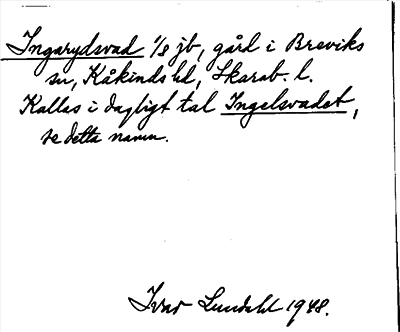 Ingarydsvad 1/8 jb, gård i Breviks
sn, Kåkinds hd, Skarab. l.
Kallas i dagligt tal Ingelsvadet,
se detta namn.
Ivar Lundahl 1948.